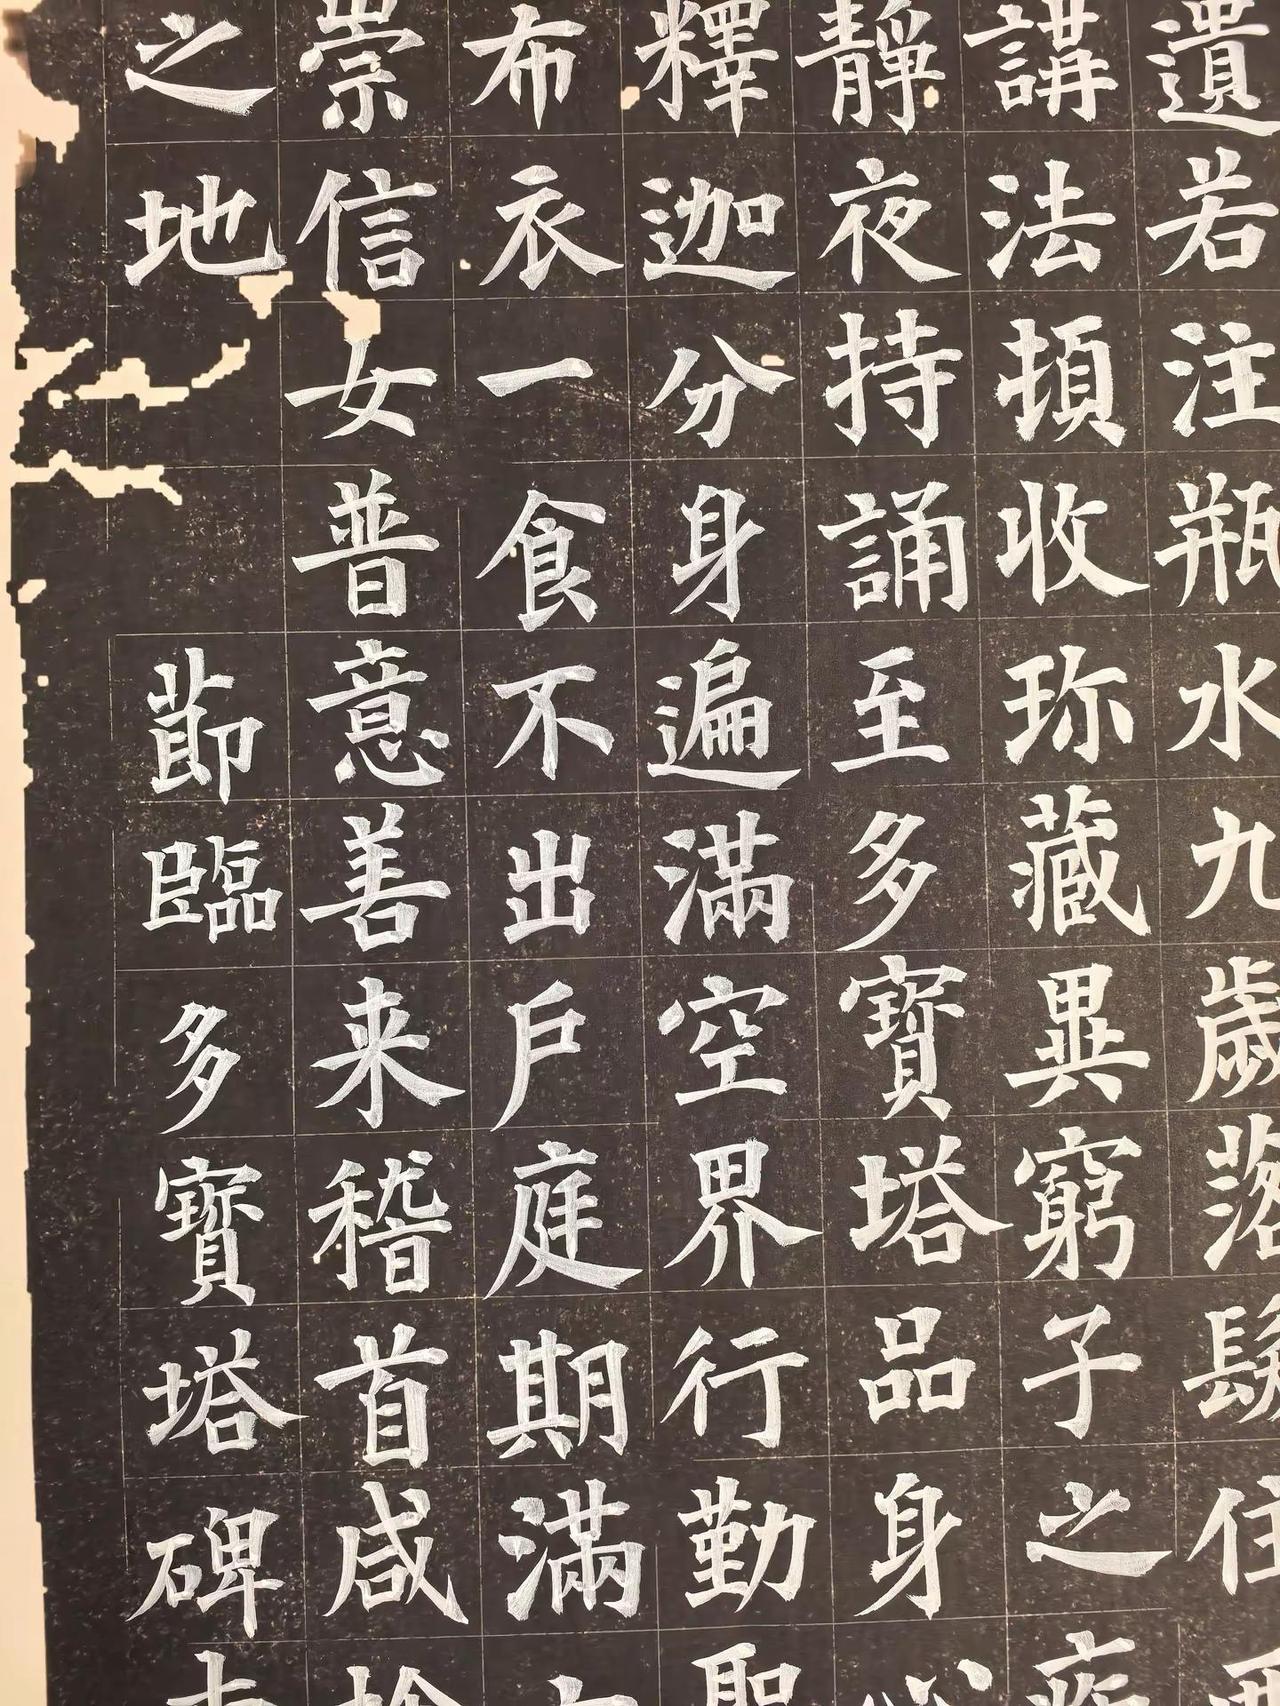 遺若注瓶水九歲落髮住
講法頓收珎藏異窮子之疾
靜夜持誦至多寶塔品身心
釋迦分身遍滿空界行勤聖
布衣一食不出戶庭期滿
崇信女普意善来稽首咸捨
之地
莭臨多寶塔碑